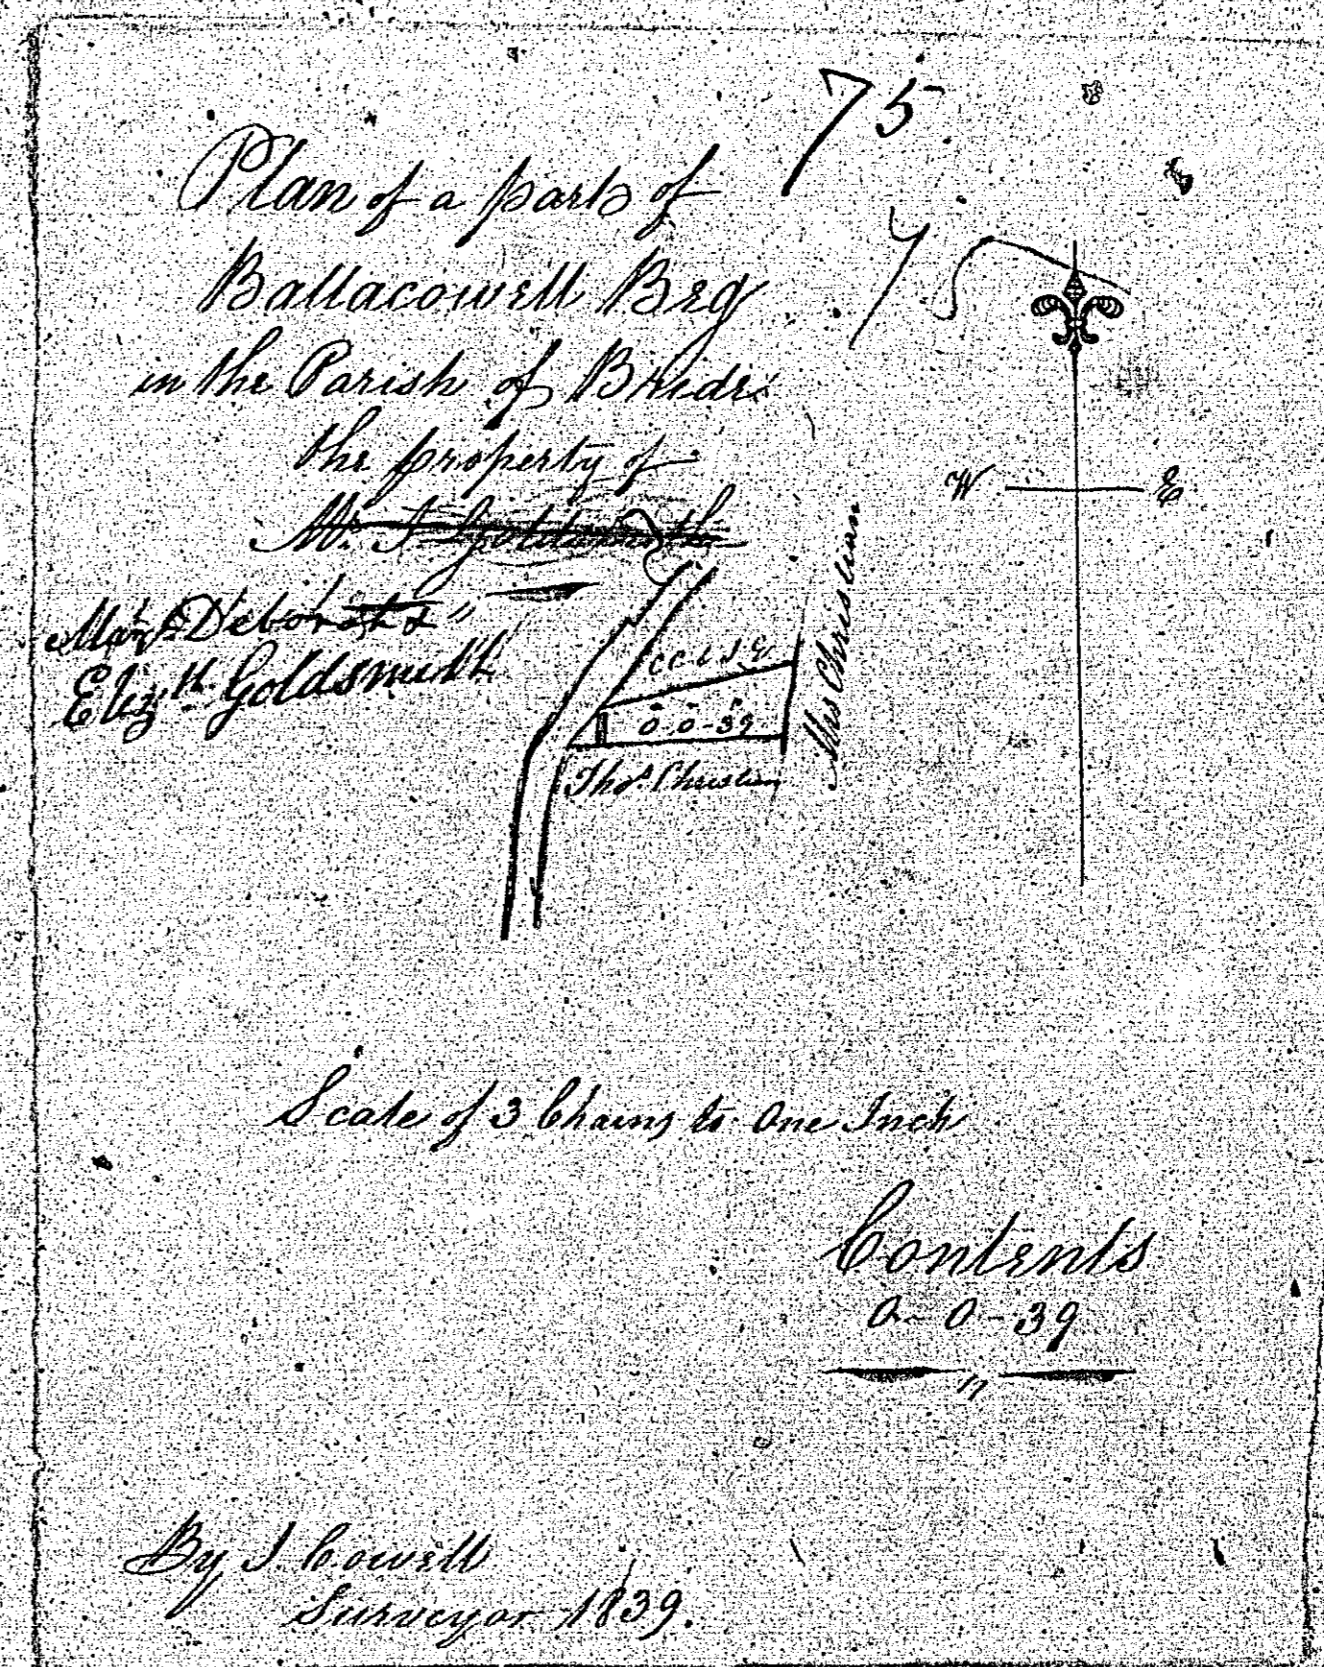 75
75
Plan of a part of
Ballacowell Beg
in the Parish of Bride
the property of
Mr. J Goldsmith
Deborah &
Elizth. Goldsmith
W E
0-0-39
Mrs Christian
Thos. Christian
Scale of 3 Chains to One Inch
Contents
0-0-39
By J Cowell
Surveyor 1839.